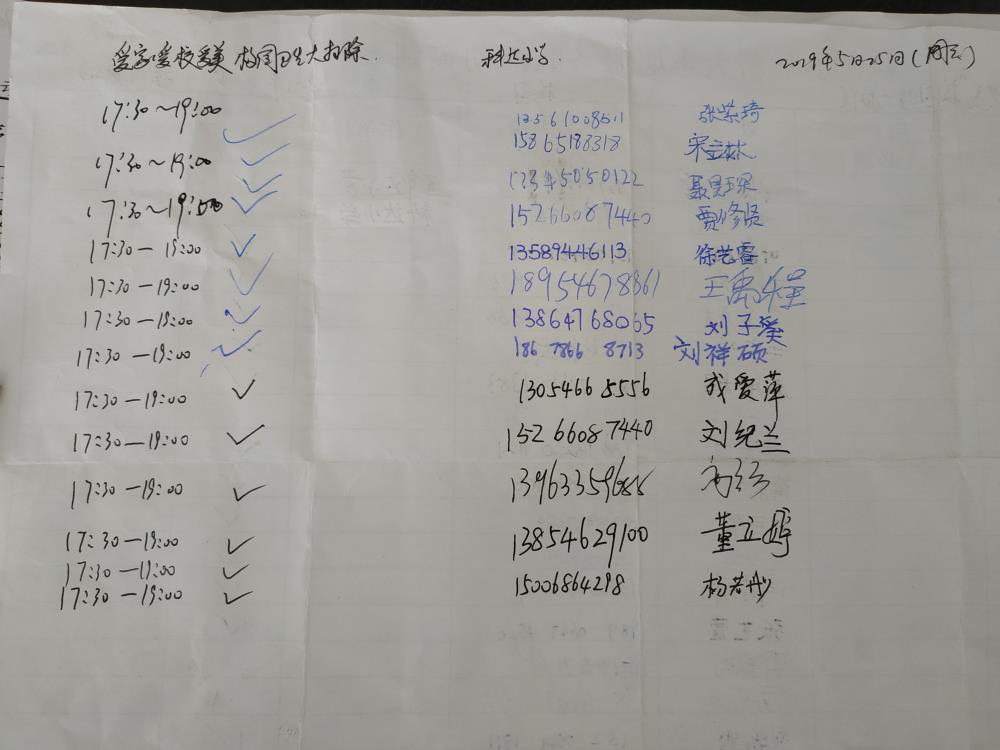 爱家爱校爱美 校园卫生大扫除. 科达小学. 2019年5月25日(周六)
17:30～19:00 13561008511 张荣琦
17:30～19:00 15865188318 宋立林
17:30～19:00 12345050122
17:30—19:00 15266087440 贾修贤
17:30—19:00 13589446113 徐艺睿
17:30—19:00 18954678861 王禹程
17:30—19:00 13864768065 刘子葵
17:30—19:00 186 7866 8713 刘祥硕
17:30—19:00 1305466 5556 成爱萍
17:30—19:00 15266087440 刘纪兰
17:30—19:00
17:30—19:00 13854629100 董立婷
17:30—19:00 15006864298 杨若彤
17:30—19:00